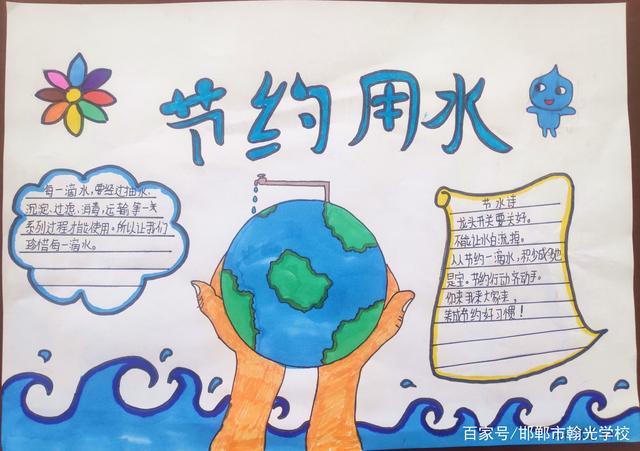 节约用水
每一滴水,要经过抽水、
沉泥、过滤、消毒、运输等一关
系列过程才能使用。所以让我们
珍惜每一滴水。
节水谣
龙头开关要关好。
不能让水白流掉。
人人节约一滴水,积少成多也
是宝。节约行动齐动手。
你来我来大家来,
养成节约好习惯!
百家号/邯郸市翰光学校